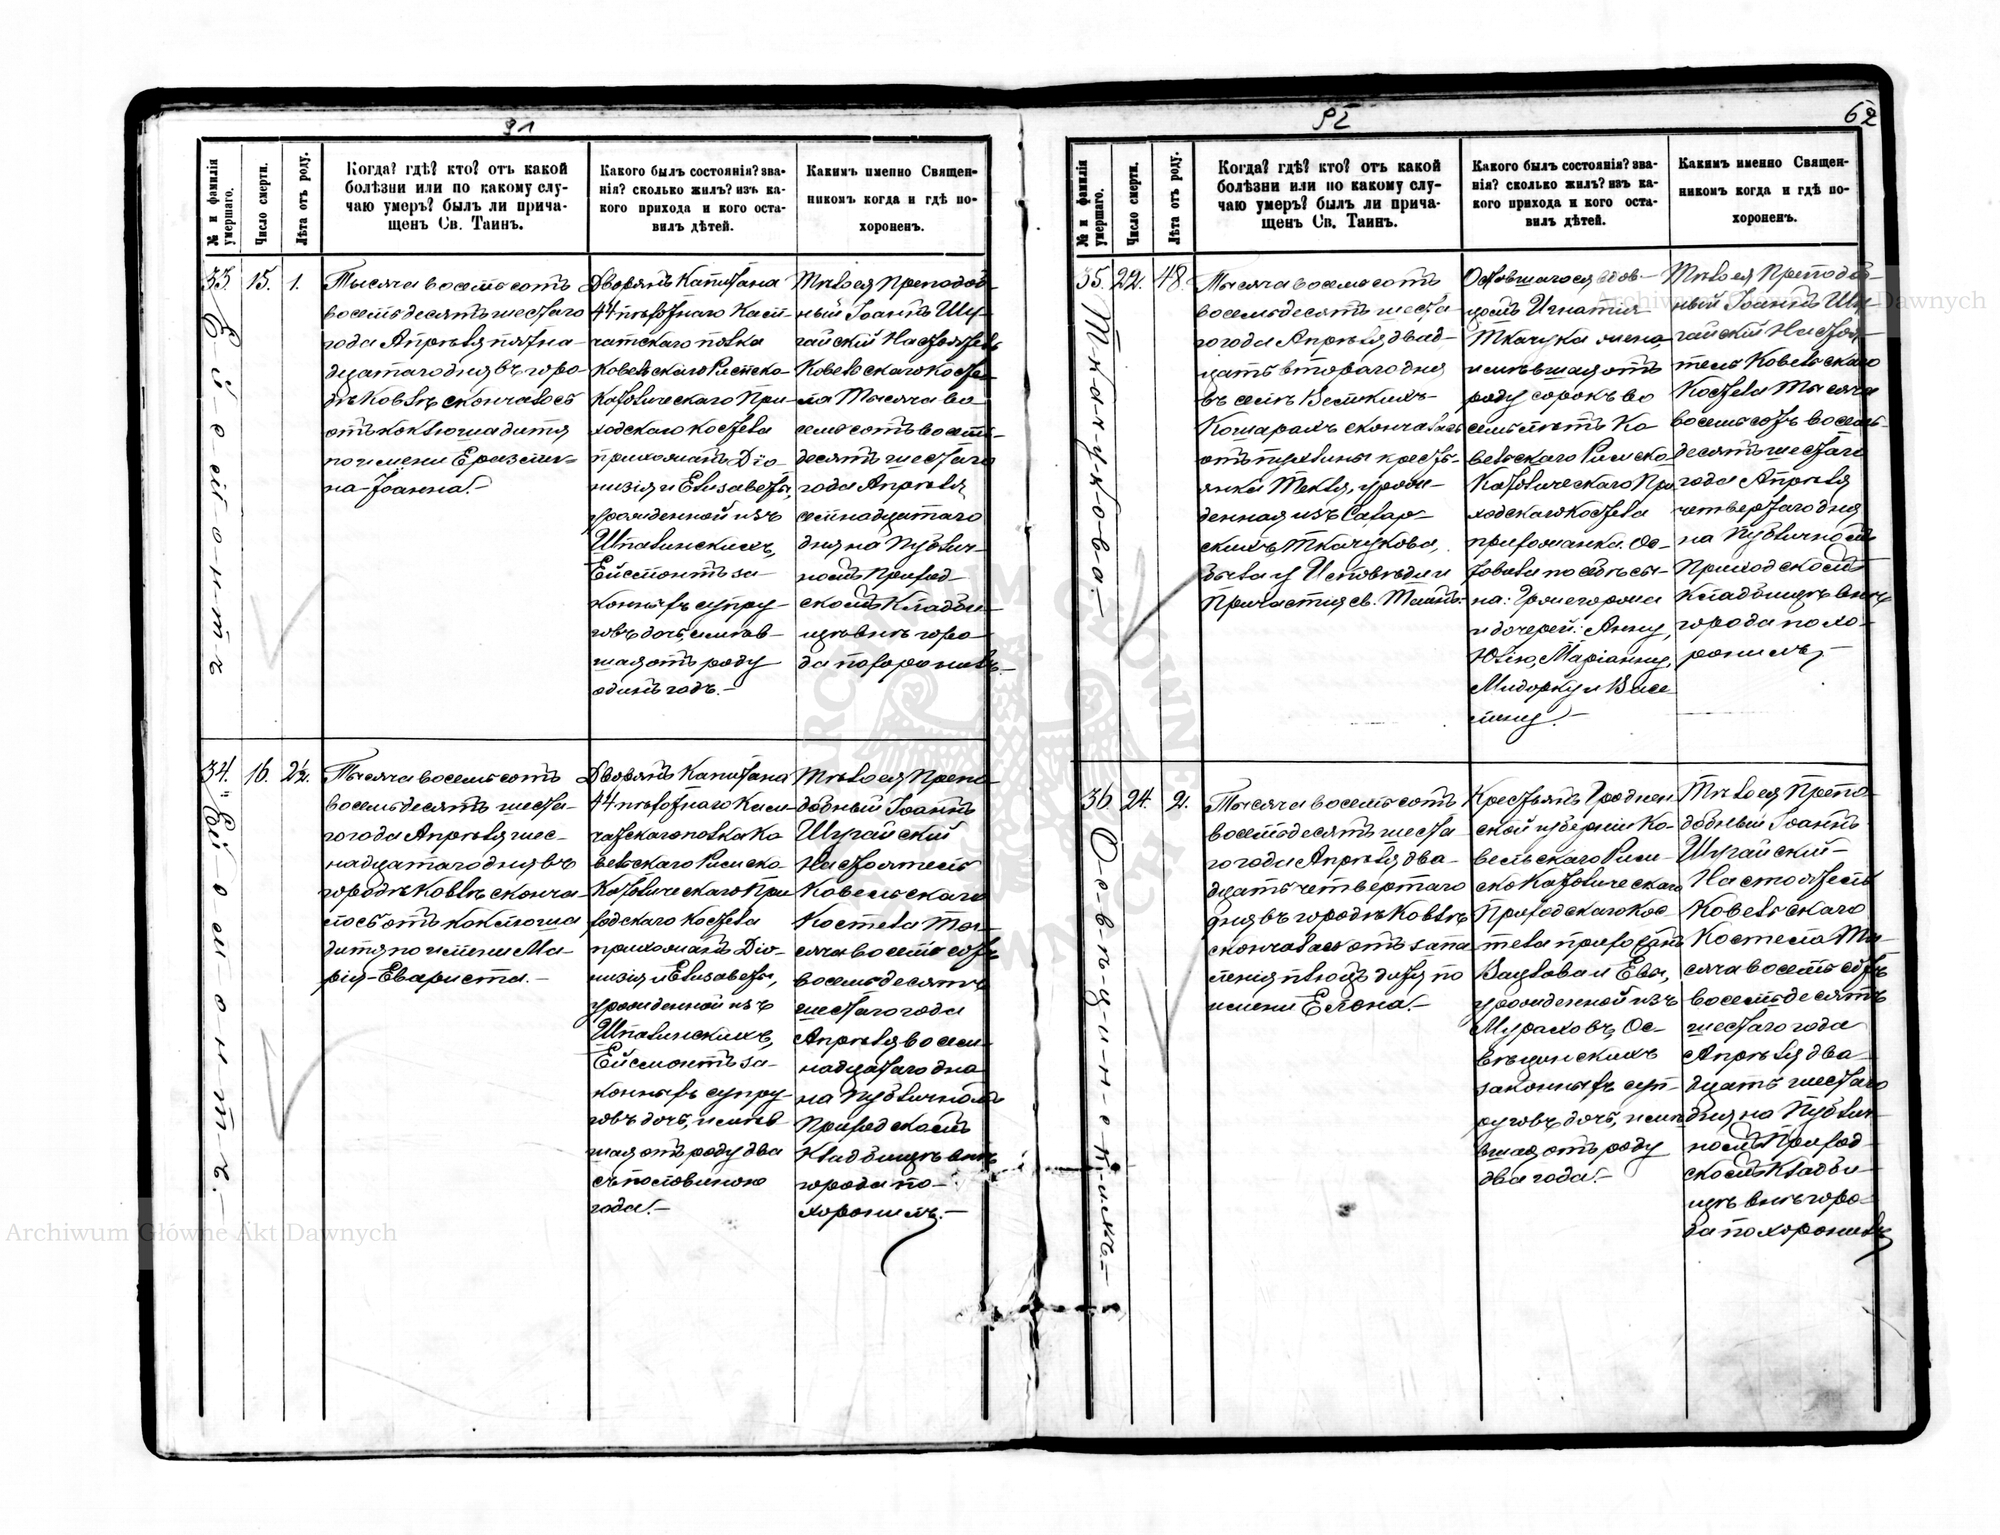 91
№ и фамилія умершаго.
Число смерти.
Лѣта отъ роду.
Когда? гдѣ? кто? отъ какой
болѣзни или по какому слу-
чаю умеръ? былъ ли прича-
щенъ Св. Таинъ.
Какого былъ состоянія? зва-
нія? сколько жилъ? изъ ка-
кого прихода и кого оста-
вилъ дѣтей.
Какимъ именно Священ-
никомъ когда и гдѣ по-
хороненъ.
33.
Ейсмонтъ
15.
1.
Тысяча восемьсотъ
восемьдесятъ шестаго
года Апрѣля пятна-
дцатаго дня въ горо-
дѣ Ковлѣ скончалось
отъ коклюша дитя
по имени Еразми-
на-Іоанна.-
Дворянъ Капитана
44 пѣхотнаго Кам-
чатскаго полка
Ковельскаго Римско-
Католическаго При-
ходскаго Костела
прихожанъ Діо-
низія и Елизаветы,
урожденной изъ
Шпилинскихъ,
Ейсмонтъ за-
конныхъ супру-
говъ дочь, имѣв-
шая отъ роду
одинъ годъ.-
Тѣло ея Преподоб-
ный Іоаннъ Шу-
гайскій Настоятель
Ковельскаго Косте-
ла Тысяча во-
семьсотъ восемь-
десятъ шестаго
года Апрѣля
семнадцатаго
дня на Публич-
номъ Приход-
скомъ Кладби-
щѣ внѣ горо-
да похоронилъ.-
34.
Ейсмонтъ.-
16.
2½.
Тысяча восемьсотъ
восемьдесятъ шеста-
го года Апрѣля шес-
надцатаго дня въ
городѣ Ковлѣ сконча-
лось отъ коклюша
дитя по имени Ма-
рія-Евариста.-
Дворянъ Капитана
44 пѣхотнаго Кам-
чатскаго полка Ко-
вельскаго Римско
Католическаго При
ходскаго Костела
прихожанъ Діо-
низія и Елизаветы,
урожденной изъ
Шпилинскихъ,
Ейсмонтъ за-
конныхъ супру-
говъ дочь, имѣв
шая отъ роду два
съ половиною
года.-
Тѣло ея Препо-
добный Іоаннъ
Шугайскій
Настоятель
Ковельскаго
Костела Ты-
сяча восемьсотъ
восемьдесятъ
шестаго года
Апрѣля восем-
надцатаго дня
на Публичномъ
Приходскомъ
Кладбищѣ внѣ
города по-
хоронилъ.-
92
62
№ и фамилія умершаго.
Число смерти.
Лѣта отъ роду.
Когда? гдѣ? кто? отъ какой
болѣзни или по какому слу-
чаю умеръ? былъ ли прича-
щенъ Св. Таинъ.
Какого былъ состоянія? зва-
нія? сколько жилъ? изъ ка-
кого прихода и кого оста-
вилъ дѣтей.
Какимъ именно Священ-
никомъ когда и гдѣ по-
хороненъ.
35.
Ткачукова.-
22.
48.
Тысяча восемьсотъ
восемьдесятъ шеста
го года Апрѣля двад-
цать втораго дня
въ селѣ Великихъ-
Кошарахъ скончалась
отъ крестья-
янка Текля, урож-
денная изъ
скихъ, Ткачукова,
была у Исповѣди и
Причастія св. Таинъ.
Оставшагося вдов-
цомъ Игнатія
Ткачука жена,
имѣвшая отъ
роду сорокъ во
семь лѣтъ Ко
вельскаго Римско
Католическаго При
ходскаго Костела
прихожанка. Ос-
тавила по себѣ сы-
на:
и дочерей: Анну,
Юлію, Маріанну,
Тѣло ея Преподоб-
ный Іоаннъ Шу-
гайскій Настоя-
тель Ковельскаго
Костела Тысяча
восемьсотъ восемь-
десятъ шестаго
года Апрѣля
четвертаго дня
на Публичномъ
Приходскомъ
Кладбищѣ внѣ
города похо-
ронилъ.-
36.
Освѣцинскихъ.-
24.
2.
Тысяча восемьсотъ
восемьдесятъ шеста
го года Апрѣля два-
дцать четвертаго
дня въ городѣ Ковлѣ
скончалась отъ запа
ленія дитя по
имени Елена.-
Крестьянъ Гроднен
ской губерніи Ко-
вельскаго Рим-
ско Католическаго
Приходскаго Кос
тела прихожанъ
Вацлава и Евы,
урожденной изъ
Ос-
вѣцинскихъ
законныхъ суп-
руговъ дочь, имѣ
вшая отъ роду
два года.-
Тѣло ея Препо-
добный Іоаннъ
Шугайскій-
Настоятель
Ковельскаго
Костела Ты-
сяча восемьсотъ
восемьдесятъ
шестаго года
Апрѣля два-
дцать шестаго
дня на Публич-
номъ Приход-
скомъ Кладби-
щѣ внѣ горо-
да похоронилъ
Archiwum Główne Akt Dawnych
Archiwum Główne Akt Dawnych
ARCHIWUM GŁÓWNE AKT DAWNYCH